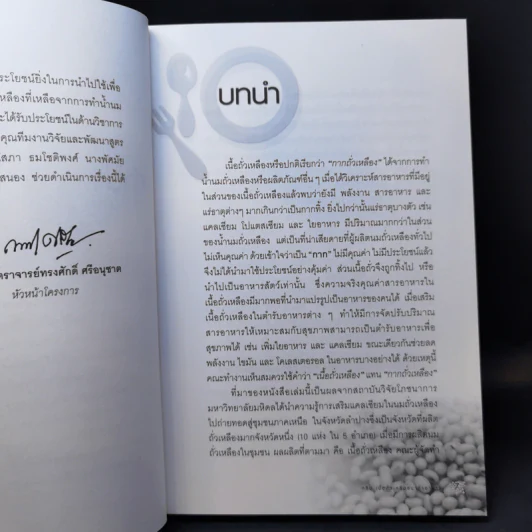 ประโยชน์ยิ่งในการนำไปใช้เพื่อ
เหลืองที่เหลือจากการทำน้ำนม
จะได้รับประโยชน์ในด้านวิชาการ
คุณทีมงานวิจัยและพัฒนาสูตร
โสภา ธมโชติพงศ์ นางพัศมัย
สนอง ช่วยดำเนินการเรื่องนี้ได้
ตราจารย์ทรงศักดิ์ ศรีอนุชาต
หัวหน้าโครงการ
บทนำ
เนื้อถั่วเหลืองหรือปกติเรียกว่า "กากถั่วเหลือง" ได้จากการทำ
น้ำนมถั่วเหลืองหรือผลิตภัณฑ์อื่น ๆ เมื่อได้วิเคราะห์สารอาหารที่มีอยู่
ในส่วนของเนื้อถั่วเหลืองแล้วพบว่ายังมี พลังงาน สารอาหาร และ
แร่ธาตุต่างๆ มากเกินกว่าเป็นกากทิ้ง ยิ่งไปกว่านั้นแร่ธาตุบางตัว เช่น
แคลเซียม โปแตสเซียม และ ใยอาหาร มีปริมาณมากกว่าในส่วน
ของน้ำนมถั่วเหลือง แต่เป็นที่น่าเสียดายที่ผู้ผลิตนมถั่วเหลืองทั่วไป
ไม่เห็นคุณค่า ด้วยเข้าใจว่าเป็น "กาก" ไม่มีคุณค่า ไม่มีประโยชน์แล้ว
จึงไม่ได้นำมาใช้ประโยชน์อย่างคุ้มค่า ส่วนเนื้อถั่วจึงถูกทิ้งไป หรือ
นำไปเป็นอาหารสัตว์เท่านั้น ซึ่งความจริงคุณค่าสารอาหารใน
เนื้อถั่วเหลืองมีมากพอที่นำมาแปรรูปเป็นอาหารของคนได้ เมื่อเสริม
เนื้อถั่วเหลืองในตำรับอาหารต่าง ๆ ทำให้มีการจัดปรับปริมาณ
สารอาหารให้เหมาะสมกับสุขภาพสามารถเป็นตำรับอาหารเพื่อ
สุขภาพได้ เช่น เพิ่มใยอาหาร และ แคลเซียม ขณะเดียวกันช่วยลด
พลังงาน ไขมัน และ โคเลสเตอรอล ในอาหารบางอย่างได้ ด้วยเหตุนี้
คณะทำงานเห็นสมควรใช้คำว่า "เนื้อถั่วเหลือง" แทน "กากถั่วเหลือง"
ที่มาของหนังสือเล่มนี้เป็นผลจากสถาบันวิจัยโภชนาการ
มหาวิทยาลัยมหิดลได้นำความรู้การเสริมแคลเซียมในนมถั่วเหลือง
ไปถ่ายทอดสู่ชุมชนภาคเหนือ ในจังหวัดลำปางซึ่งเป็นจังหวัดที่ผลิต
ถั่วเหลืองมากจังหวัดหนึ่ง (10 แห่ง ใน 5 อำเภอ) เมื่อมีการผลิตนม
ถั่วเหลืองในชุมชน ผลผลิตที่ตามมา คือ เนื้อถั่วเหลือง คณะผู้จัดทำ